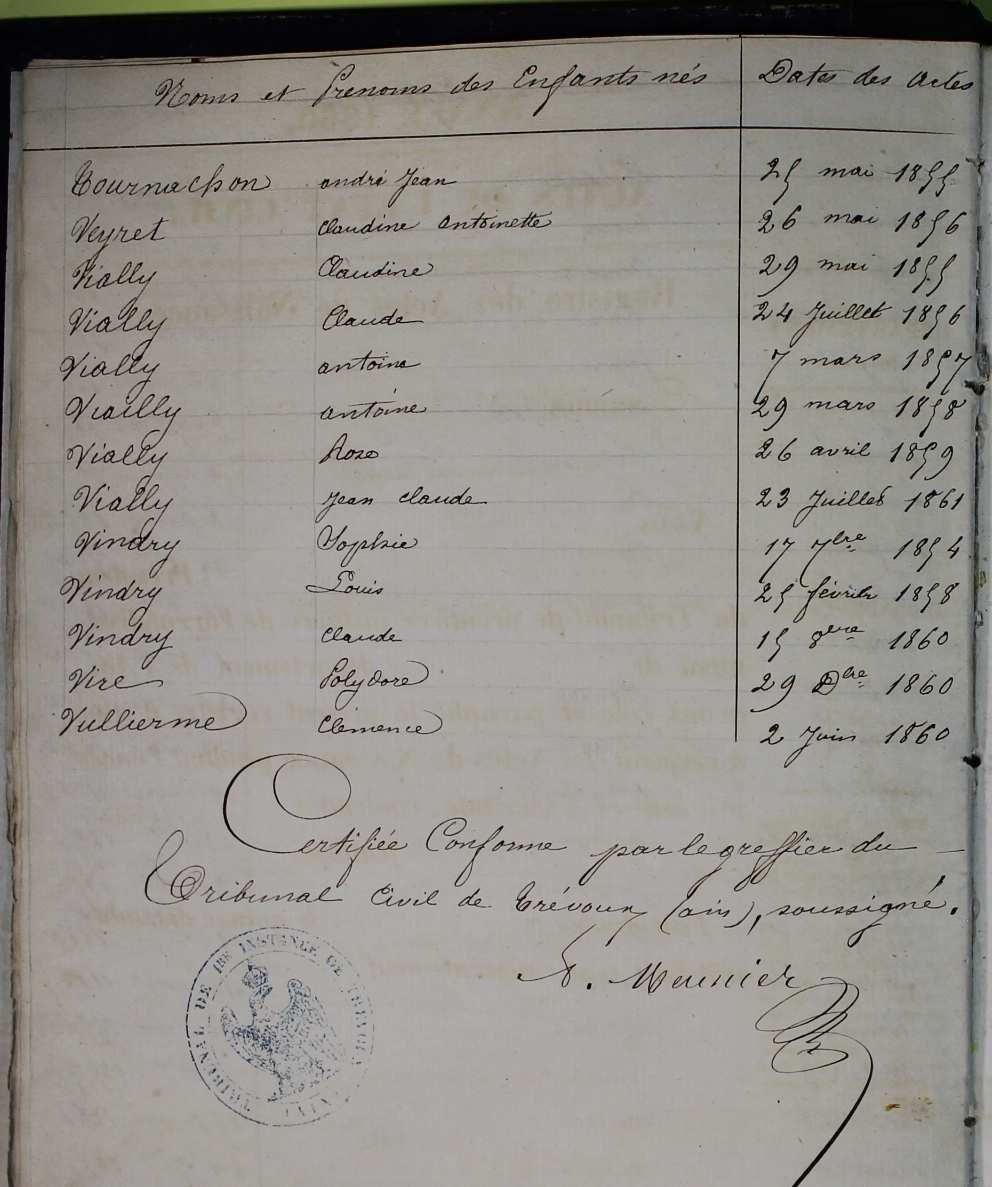 Noms et Prenoms des Enfants nés Dates des actes
Tournachon andré Jean 25 mai 1855
Veyret Claudine antoinette 26 mai 1856
Vially Claudine 29 mai 1855
Vially Claude 24 Juillet 1856
Vially antoine 7 mars 1857
Viailly antoine 29 mars 1858
Vially Rose 26 avril 1859
Vially Jean Claude 23 Juillet 1861
Vindry Sophie 17 7bre 1854
Vindry Louis 25 février 1858
Vindry Claude 15 8bre 1860
Vire Polydore 29 Dbre 1860
Vullierme Clémence 2 Juin 1860
Certifiée Conforme par le greffier du
Tribunal Civil de Trévoux (ain), soussigné.
A. Meunier
TRIBUNAL DE 1RE INSTANCE DE TREVOUX
(AIN)